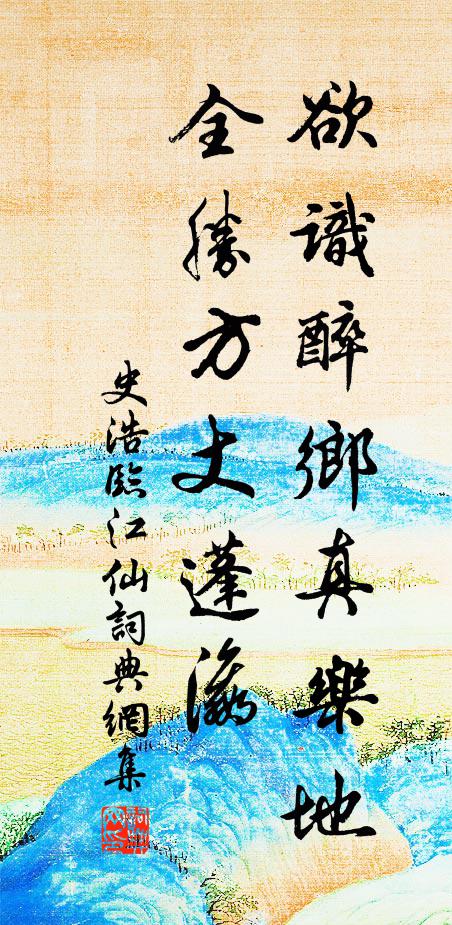 欲識醉鄉真樂地
全勝方丈蓬瀛
史浩臨江仙詞典網集